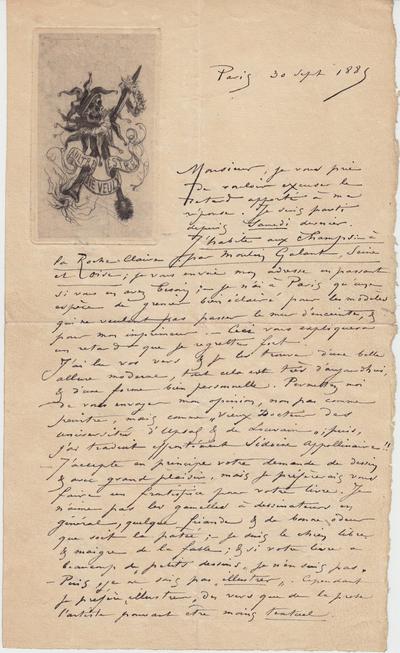 Paris 30 sept 1885
AULTRE
NE VEULX
Monsieur, je vous prie
de vouloir excuser le
retard apporté à ma
réponse. Je suis parti
depuis Samedi dernier.
J'habite aux Champs à
la Roche-Claire par Moulin Galant, Seine
et Oise; je vous envoie mon adresse en passant
si vous en avez besoin; je n'ai à Paris qu'une
espèce de grenier bien éclairé pour les modèles
qui ne veulent pas passer le mur d'enceinte, &
pour mon imprimeur. – Ceci vous expliquera
un retard que je regrette fort.
J'ai lu vos vers & je les trouve d'une belle
allure moderne, tout cela est très d'aujourd'hui,
& d'une forme bien personnelle. Permettez moi
de vous envoyer mon opinion, non pas comme
peintre, mais comme vieux Docteur des
universités d'Upsal & de Louvain, puis,
j'ai traduit Sidoine Apollinaire!!
J'accepte en principe votre demande de dessin
& avec grand plaisir, mais je préférerais vous
faire un frontispice pour votre livre. Je
n'aime pas les gamelles à dessinateurs en
général, quelque friande & de bonne odeur
que soit la patée; – je suis le chien libre
& maigre de la fable; & si votre livre a
beaucoup de petits dessins, je n'en suis pas.
– Puis, je ne sais pas "illustrer". Cependant
je préfère illustrer des vers que de la prose
l'artiste pouvant être moins textuel.